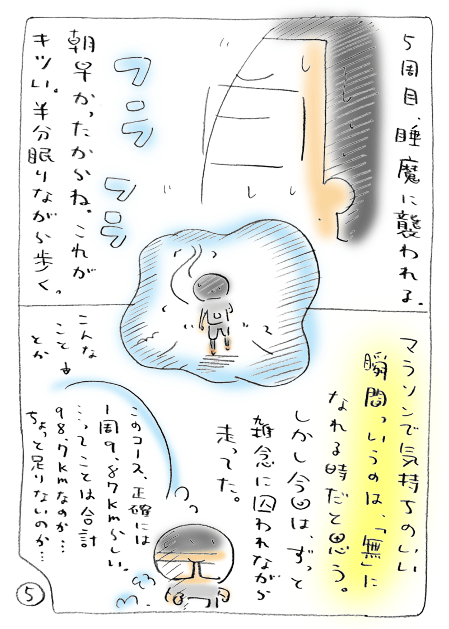 5周目、睡魔に襲われる。
フラ
フラ
朝早かったからね。これが
キツい。半分眠りながら歩く。
マラソンで気持ちのいい
瞬間っいうのは、「無」に
なれる時だと思う。
しかし今回は、ずっと
雑念に囚われながら
走ってた。
このコース、正確には
1周9.87kmらしい。
…ってことは合計
98.7kmなのか…
ちょっと足りないのか…
こんな
こと→
とか
5